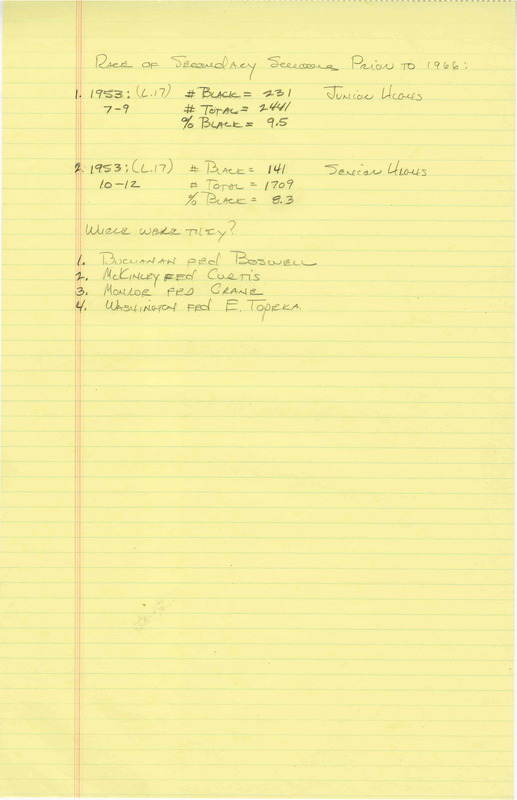 Race of Secondary Schools Prior to 1966:
1. 1953: (L.17) # Black = 231 Junior Highs
7-9 # Total = 2441
% Black = 9.5
2. 1953: (L.17) # Black = 141 Senior Highs
10-12 # Total = 1709
% Black = 8.3
Where were they?
1. Buchanan fed Boswell
2. McKinley fed Curtis
3. Monroe fed Crane
4. Washington fed E. Topeka.